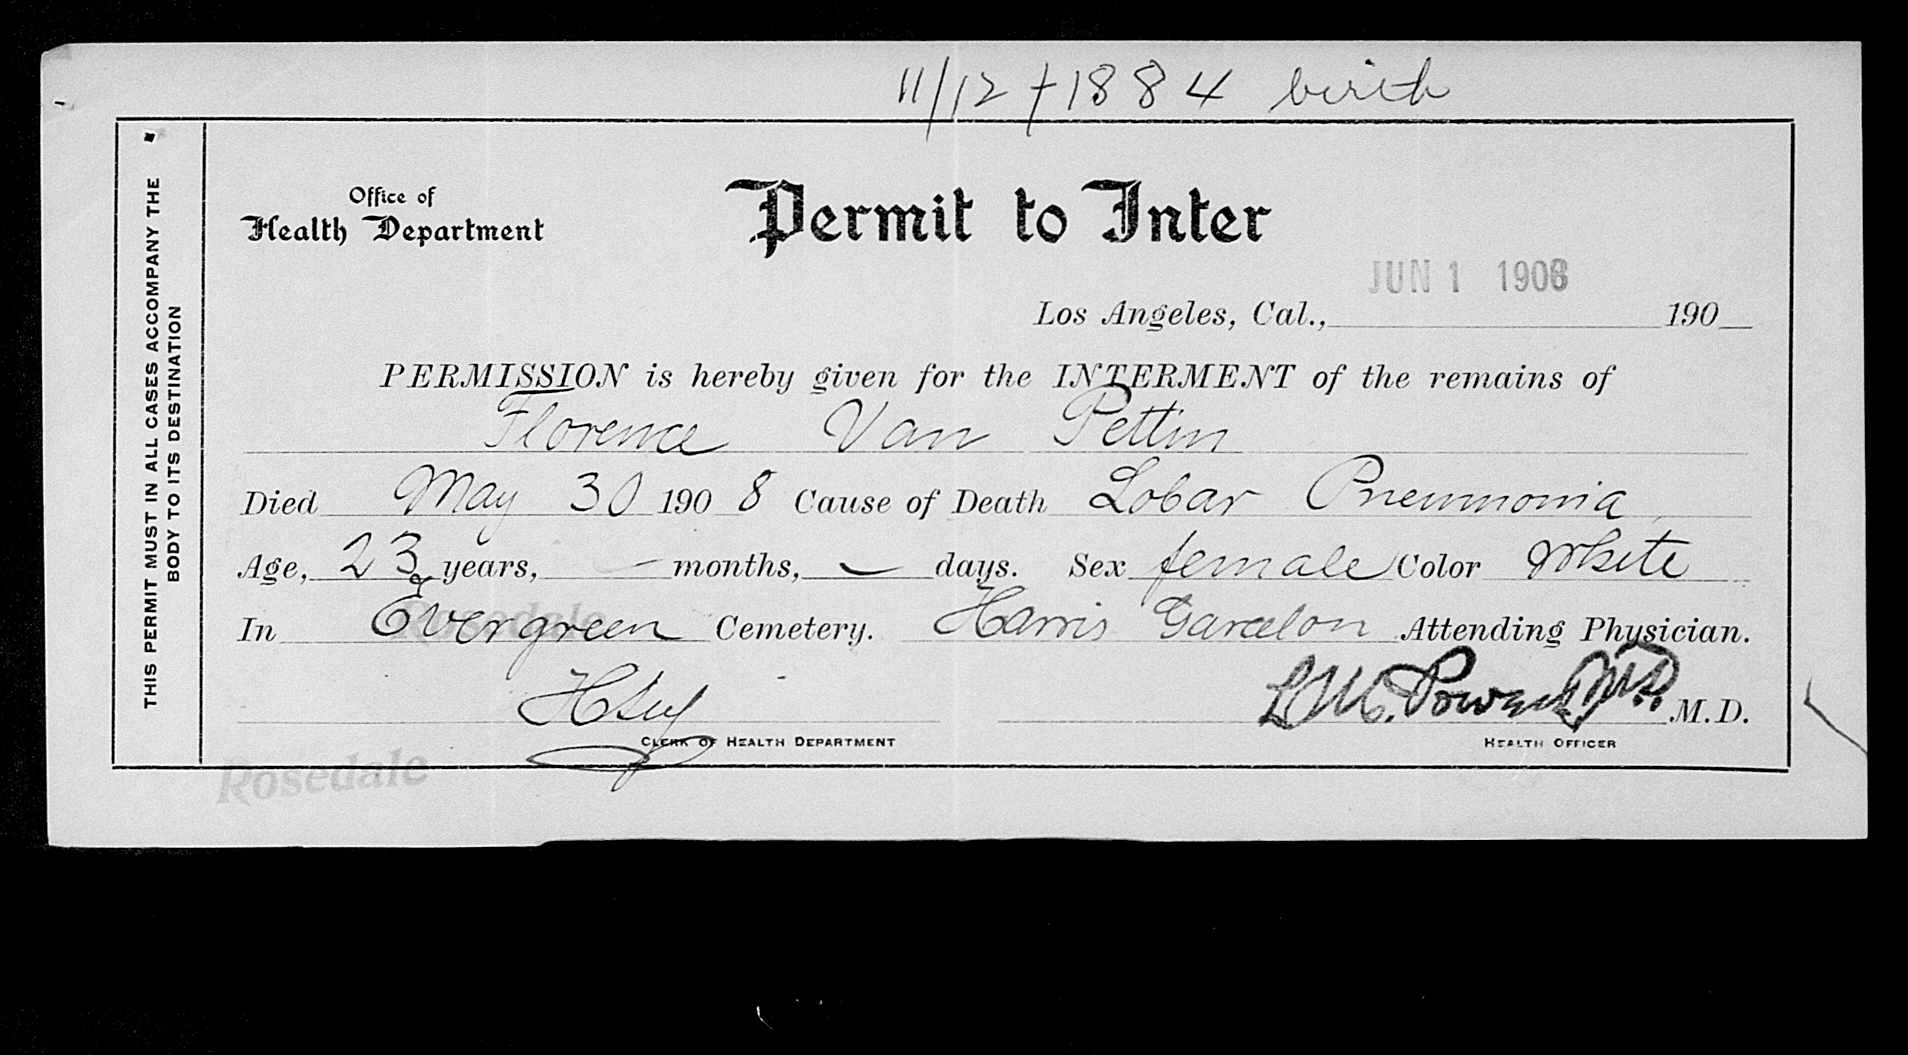 11/12 + 1884 birth
THIS PERMIT MUST IN ALL CASES ACCOMPANY THE
BODY TO ITS DESTINATION
Office of
Health Department
Permit to Inter
JUN 1 1908
Los Angeles, Cal., 190
PERMISSION is hereby given for the INTERMENT of the remains of
Florence Van Pettin
Died May 30 190 8 Cause of Death Lobar Pneumonia
Age, 23 years, — months, — days. Sex female Color White
Rosedale
In Evergreen Cemetery. Harris Garcelon Attending Physician.
L M Powers M.D. M.D.
CLERK OF HEALTH DEPARTMENT HEALTH OFFICER
Rosedale